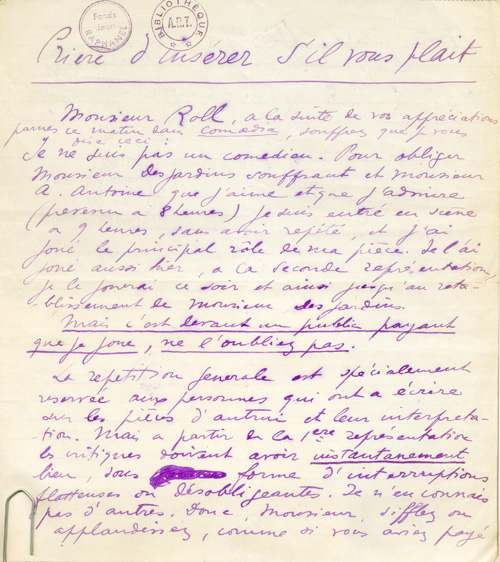 Fonds
Jean
RAPHANEL
BIBLIOTHÈQUE
A.R.T.
Prière d'insérer s'il vous plait
Monsieur Roll, a la suite de vos appréciations
parues ce matin dans comœdia, souffrez que je vous
dise ceci :
Je ne suis pas un comedien. Pour obliger
Monsieur Des jardins souffrant et monsieur
A. Antoine que j'aime et que j'admire
(prevenu a 8 heures) je suis entré en scène
a 9 heures, sans avoir repété, et j'ai
joué le principal rôle de ma pièce. Je l'ai
joué aussi hier, a la seconde représentation
je le jouerai ce soir et ainsi jusqu'au reta-
blissement de monsieur Des jardins.
Mais c'est devant un public payant
que je joue, ne l'oubliez pas.
La repetition generale est spécialement
reservée aux personnes qui ont a écrire
sur les pièces d'autrui et leur interpreta-
tion. Mais a partir de la 1ère représentation
les critiques doivent avoir instantanement
lieu, sous forme d'interruptions
flatteuses ou désobligeantes. Je n'en connais
pas d'autres. Donc, Monsieur, sifflez ou
applaudissez, comme si vous aviez payé